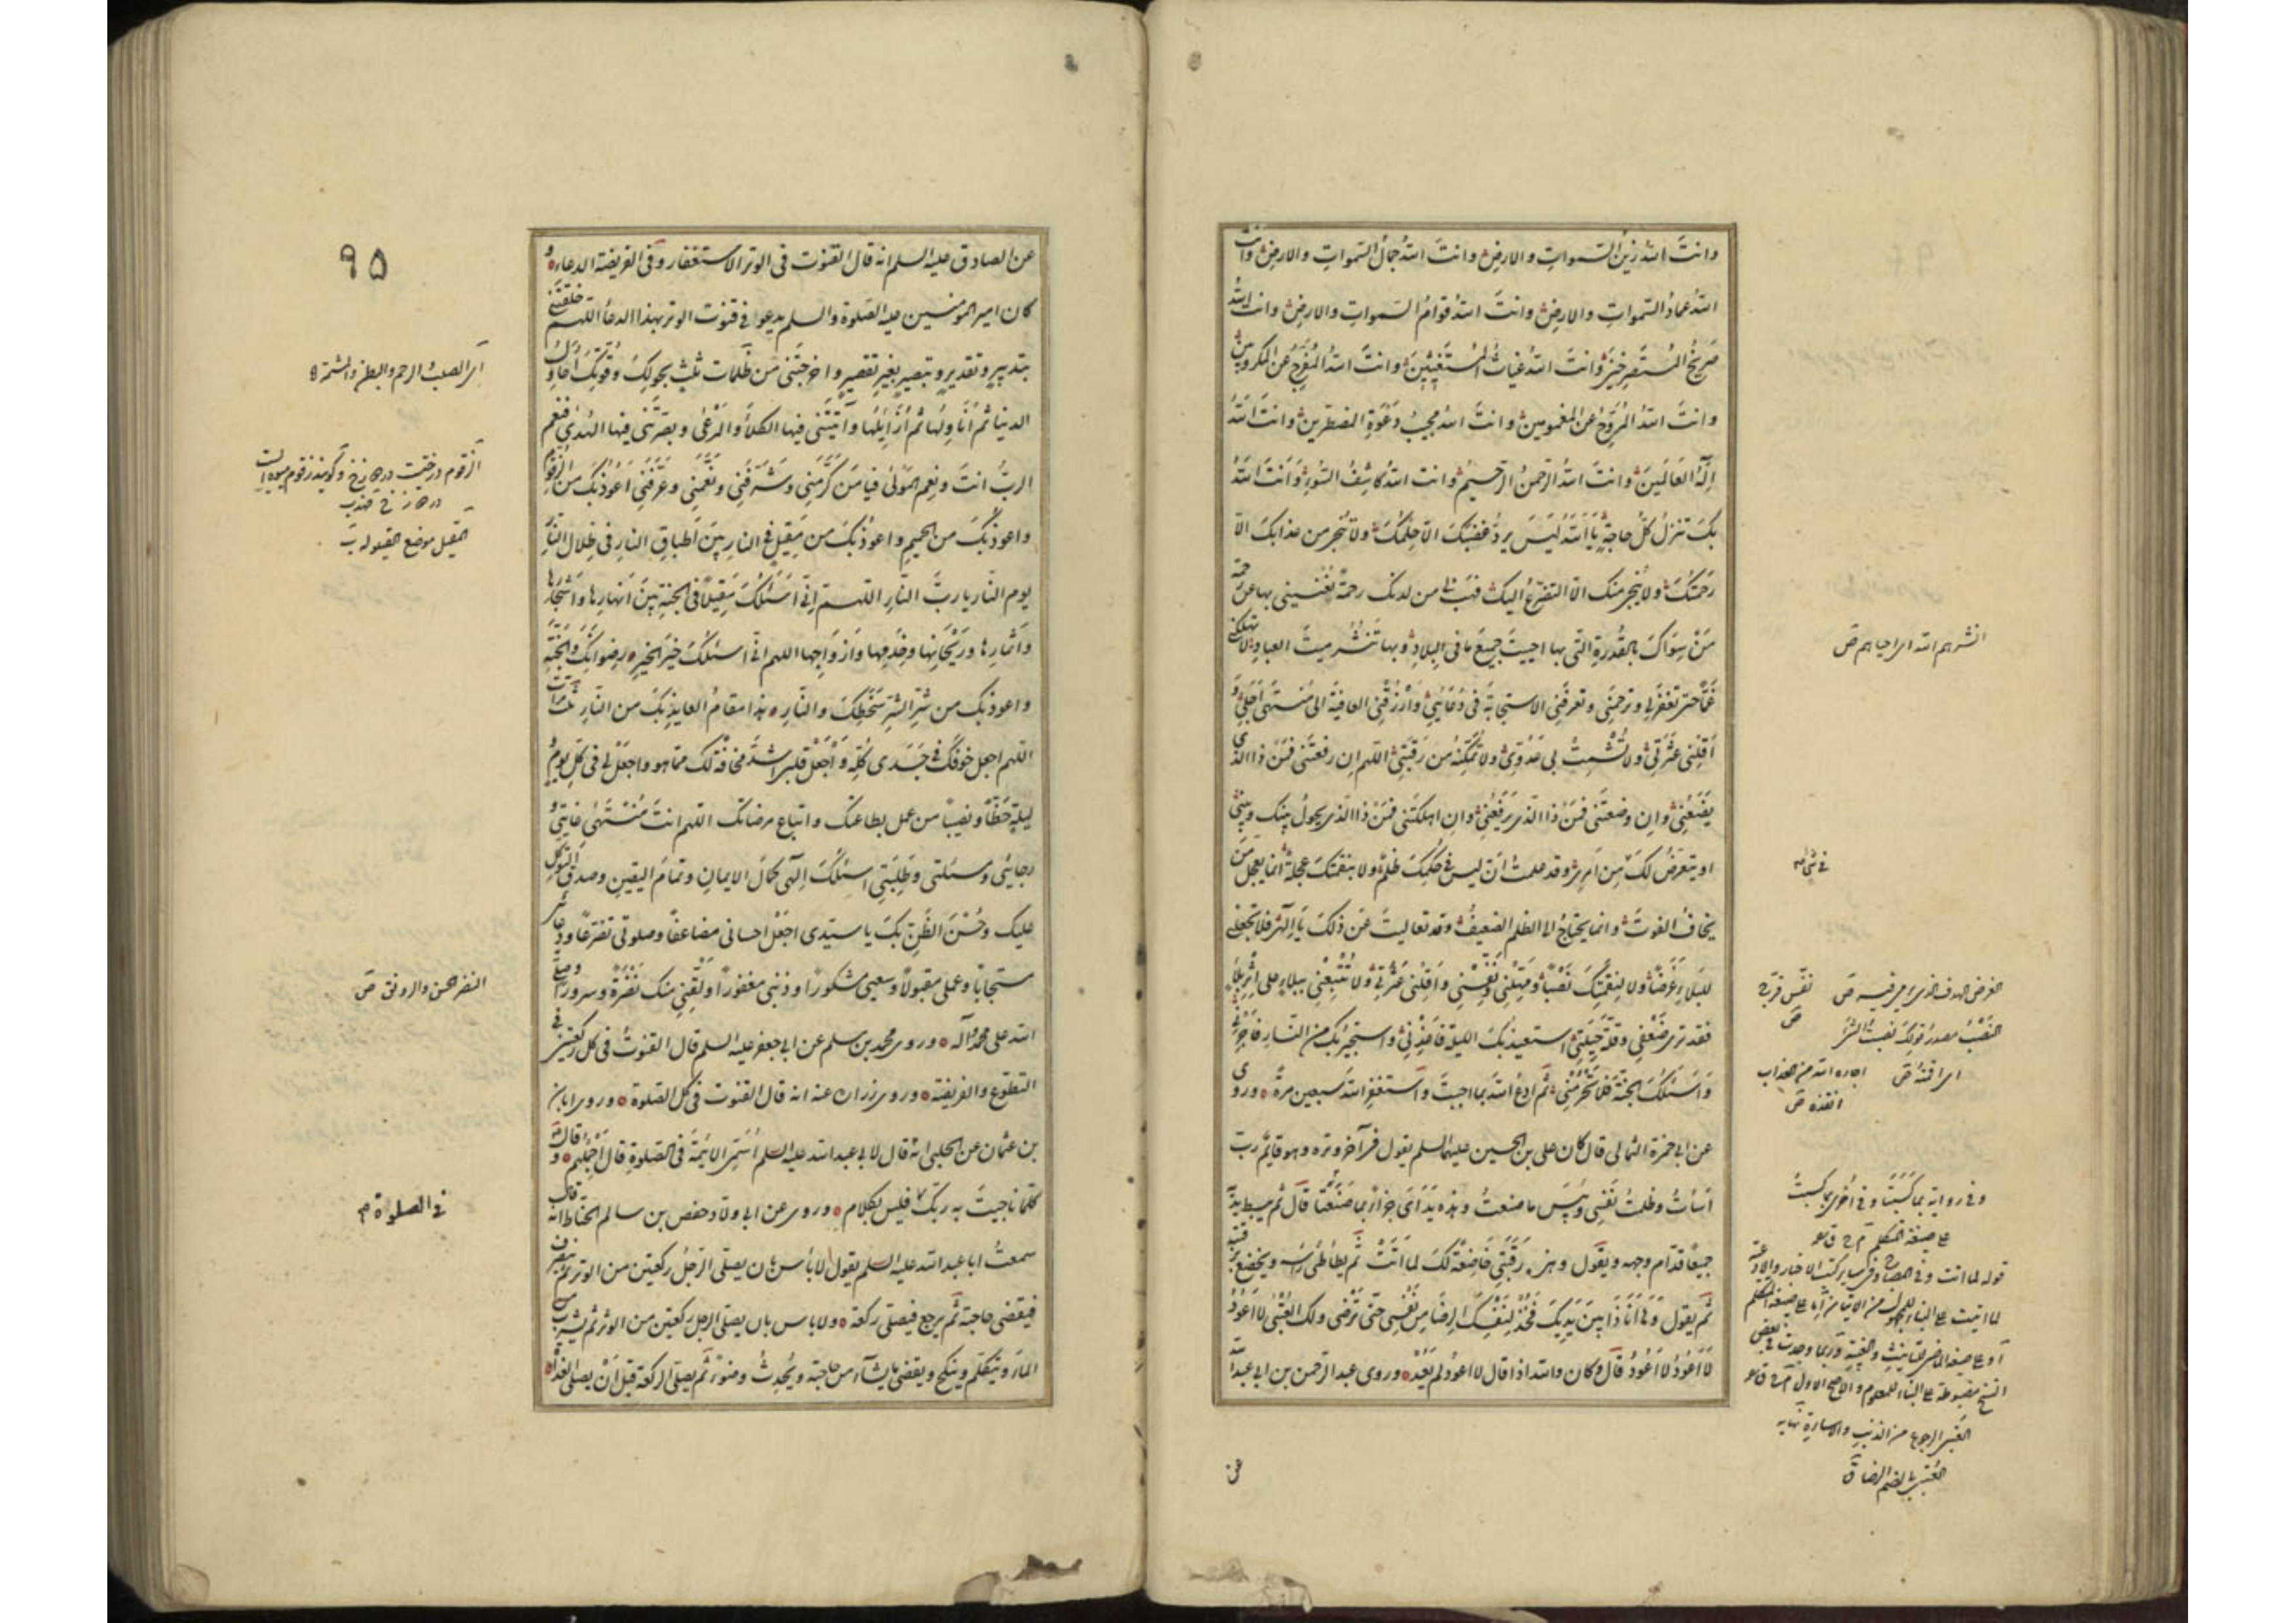 وانتَ اللهُ زينُ السمواتِ والارضِ وانتَ اللهُ جمالُ السمواتِ والارضِ وانت
اللهُ عمادُ السمواتِ والارضِ وانتَ اللهُ قوامُ السمواتِ والارضِ وانت الله
صَريخُ المُستَصرِخينَ وانتَ اللهُ غياثُ المُستَغيثينَ وانتَ اللهُ المُفرِّجُ عن المكروبين
وانتَ اللهُ المُرَوِّحُ عن المغمومين وانتَ اللهُ مجيبُ دَعْوَةِ المضطرين وانتَ اللهُ
اِلهُ العَالَمينَ وانتَ اللهُ الرّحمنُ الرّحيمُ وانت اللهُ كاشِفُ السُّوءِ وَاَنتَ اللهُ
بكَ تنزلُ كلُّ حاجةٍ يا اَللهُ لَيسَ يردُّ غضبكَ الاّ حِلمُكَ ولا يُنجى من عذابكَ الاّ
رَحمتُكَ ولا يُنجى منكَ الاّ التضرّعُ اليكَ فهَبْ لى من لدنكَ رحمةً تُغنينى بها عن رحمة
مَنْ سِوَاكَ بالقُدرةِ الّتى بها احييتَ جميعَ ما فى البلادِ وبها تَنْشُرُ ميتَ العبادِ ولا تهلكنى
غَمّاً حتى تغفرَ لى وترحمَنى وتعرّفَنى الاستجابةَ فى دُعائى وارْزُقنى العافيةَ الى مُنتهى اَجَلى و
اَقِلْنى عثْرَتى ولا تُشْمِتْ بى عَدُوّى ولا تُمَكِّنْهُ من رَقَبَتى اللّهم ان رفعتَنى فمَنْ ذا الذى
يضَعُنى وان وضعتَنى فمَنْ ذا الّذى يَرفَعُنى وان اهلكتَنى فمَنْ ذا الّذى يحولُ بينك وبينى
او يتعرّضُ لكَ فى شئ مِن اَمرى وقد علمتُ انْ ليس فى حُكمِكَ ظلمٌ ولا بنقمتكَ عجلةٌ انما يعجل من
يخافُ الفوتَ وانما يحتاجُ الى الظلمِ الضعيفُ وقد تعاليتَ عن ذلكَ يا اِلهى فلا تجعلنى
للبلاءِ غَرَضاً ولا لِنقمتِكَ نَصَباً ومَهِّلْنى ونَفِّسْنى وَاَقِلْنى عثرتى ولا تُتْبِعْنى ببلاءٍ على اَثَرِ بلاءٍ
فقد ترى ضَعْفى وقلّةَ حيلتى استعيذُ بكَ الليلةَ فاَعِذْنى واستجيرُ بك من النّارِ فَاَجِرنى
وَاَسئلُكَ الجنّةَ فلا تَحْرِمْنى ثم ادعُ اللهَ بما احببتَ واستغفر اللهَ سبعين مرةً وروى
عن ابى حمزة الثمالى قال كان على بن الحسين عليهما السلم يقول فى آخر وتره وهو قايم رب
اَسأتُ وظلمتُ نَفسى وبِئْسَ ما صنعتُ وهذه يَدَاىَ جزاءً بما صَنَعَتا قال ثم يبسط يديه
جميعاً قدّام وجهه ويقول وهذه رَقَبَتى خَاضِعَةٌ لكَ لما اَتَتْ ثم يطأطئ رأسه ويخضع برقبته
ثم يقول وَها اَنَا ذَا بينَ يَدَيكَ فَخُذْ لِنَفْسِكَ الرِضَا مِن نَفْسِى حتّى تَرْضى ولك العُتْبى لا اَعُوُدُ
لا اَعُوْدُ لا اَعُوُدُ قال وكان والله اذا قال لا اعود لم يَعُدْ وروى عبد الرحمن بن ابى عبد الله
انشرهم الله اى احياهم ص
فى شئ م
الغرض الهدف الذى يرمى فيه ص
وفى رواية بما كَسَبَتا وفى اُخرى بما كسبتُ
على صيغة المتكلم م ح ق
العتبى الرجوع من الذنب والاساءة نهاية
العتبى بالضم الرضا ق
عن
٩٥
عن الصادق عليه السلم انه قال القنوت فى الوتر الاستغفار وفى الفريضة الدعاء و
كان امير المؤمنين عليه الصلوة والسلم يدعو فى قنوت الوتر بهذا الدعاء اللهم خلقتنى
بتدبيرٍ وتقديرٍ وتبصيرٍ بغيرِ تقصيرٍ واخرجتَنى من ظلمات ثلث بحولكَ وقوّتكَ اُحاوِلُ
الدنيا ثم اُزاوِلُها ثم اُزايِلُها وآتيتَنى فيها الكلأَ والمَرْعى وبصّرتَنى فيها الهُدى فنعم
الربُّ انتَ ونِعم المَوْلى فيا مَن كَرّمَنى وشَرّفَنى ونَعّمَنى وعرّفَنى اَعُوذُ بكَ من الزقوم
واعوذُ بكَ من الحميم واعوذُ بكَ من مَقيلٍ فى النار بين اَطباقِ النارِ فى ظلال النارِ
يوم النّار يا ربَّ النّارِ اللهم اِنى اَسئلُكَ مَقيلاً فى الجنةِ بينَ اَنهارِها واَشجارِها
واَثمارِها ورَيْحانِها وخَدَمِها واَزْوَاجِها اللهم انى اسئلكَ خيرَ الخيرِ رضوانَكَ والجنّةَ
واعوذ بكَ من شرِّ الشرِّ سَخَطِكَ والنّارِ هذا مقامُ العايذِ بكَ من النّارِ ثلث مرات
اللهم اجعل خوفكَ فى جَسَدى كُلِّه واجْعَل قلبى اشدَّ مخافةً لك مما هو واجعَل لى فى كل يومٍ و
ليلةٍ حَظّاً ونصيباً من عمل بطاعتك واتباع مرضاتك اللهم انتَ مُنْتَهى غايَتى و
رجايى ومسئلتى وطَلِبَتى اسئلُكَ اِلهى كمالَ الايمانِ وتمامَ اليقينِ وصدقَ التوكّلِ
عليك وحُسْنَ الظنِّ بكَ يا سيّدى اجعَل احسانى مضاعفاً وصلوتى تضرّعاً ودعائى
مستجاباً وعملى مقبولاً وسعيى مشكوراً وذنبى مغفوراً ولَقِّنى منك نَضْرَةً وسروراً وصلى
الله على محمد وآله وروى محمد بن مسلم عن ابى جعفر عليه السلم قال القنوتُ فى كل ركعتين فى
التطوع والفريضة وروى زرارة عنه انه قال القنوت فى كل الصلوة وروى ابان
بن عثمان عن الحلبى انه قال لابى عبد الله عليه السلم اُسَمِّى الائمة فى الصلوةِ قال اَجْمِلْهم وقال
كلّما ناجيتَ به ربّك فليس بكلام وروى عن ابى ولاّد حفص بن سالم الحناط انه قال
سمعتُ ابا عبد الله عليه السلم يقول لا بأس بان يصلى الرجلُ ركعتين من الوتر ثم ينصرف
فيقضى حاجته ثم يرجع فيصلى ركعة ولا بأس بان يصلى الرجل ركعتين من الوتر ثم يشرب
الماءَ ويتكلم وينكح ويقضى ما يشآء من حاجته ويُحدِثُ وضوءً ثم يصلى الركعة قبل اَنْ يصلى الغداة
اى الصلب والرحم والبطن والمشيمة
المقيل موضع القيلولة
النضرة الحسن والرونق ص
فى الصلوة م